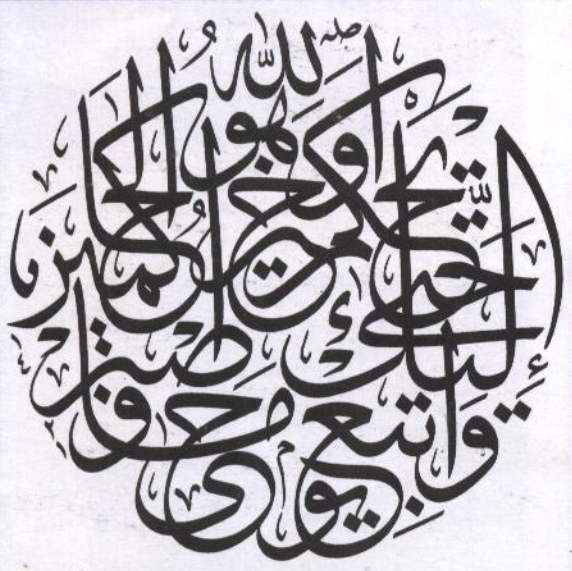 وَاتَّبِعْ مَا يُوحَىٰ إِلَيْكَ وَاصْبِرْ حَتَّىٰ يَحْكُمَ اللَّهُ وَهُوَ خَيْرُ الْحَاكِمِينَ